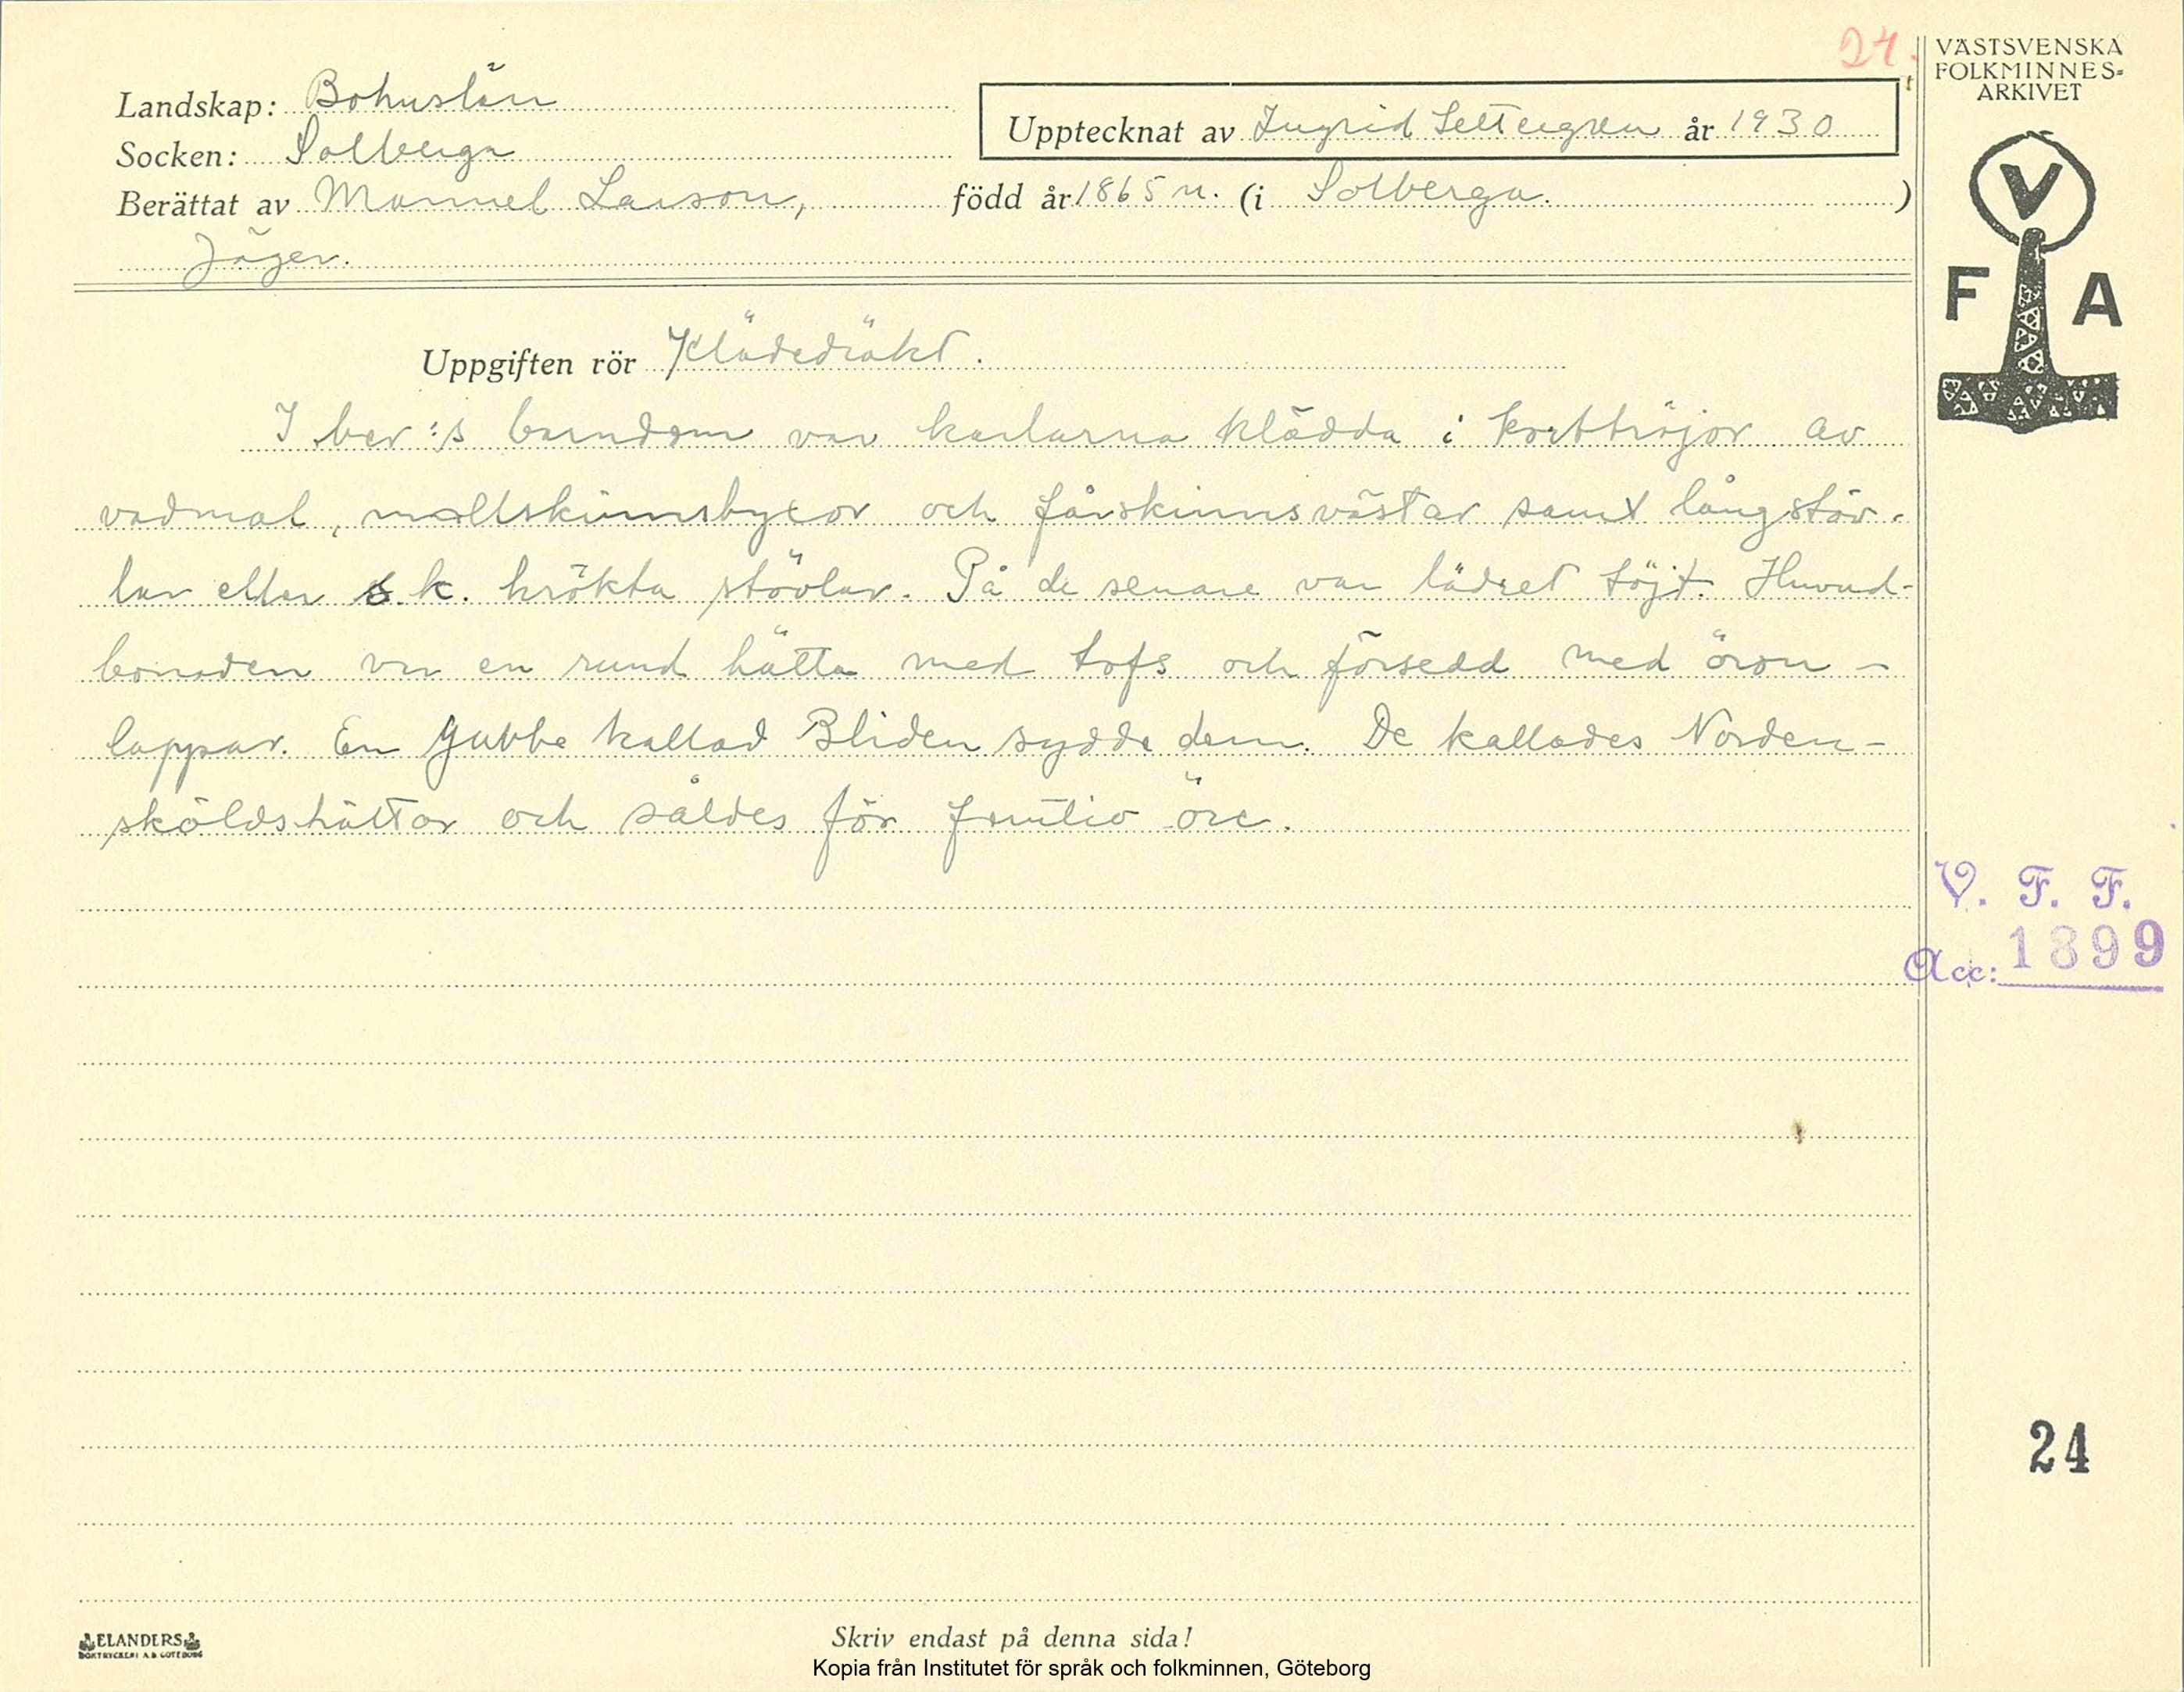 24.
VÄSTSVENSKA
FOLKMINNES-
ARKIVET
Landskap: Bohuslän
Upptecknat av Ingrid Settergren år 1930
Socken: Solberga
Berättat av Manuel Larson, född år 1865 n. (i Solberga. )
Jäger.
V
F A
Uppgiften rör Klädedräkt.
I ber:s barndom var karlarna klädda i korttröjor av
vadmal, mollskinnsbyxor och fårskinnsvästar samt långstöv-
lar eller s.k. krökta stövlar. På de senare var lädret töjt. Huvud-
bonaden var en rund hätta med tofs och försedd med öron-
lappar. En gubbe kallad Bliden sydde dem. De kallades Norden-
skölds hättor och såldes för femtio öre.
V. F. F.
Acc: 1899
24
ELANDERS
BOKTRYCKERI A.B. GÖTEBORG
Skriv endast på denna sida!
Kopia från Institutet för språk och folkminnen, Göteborg